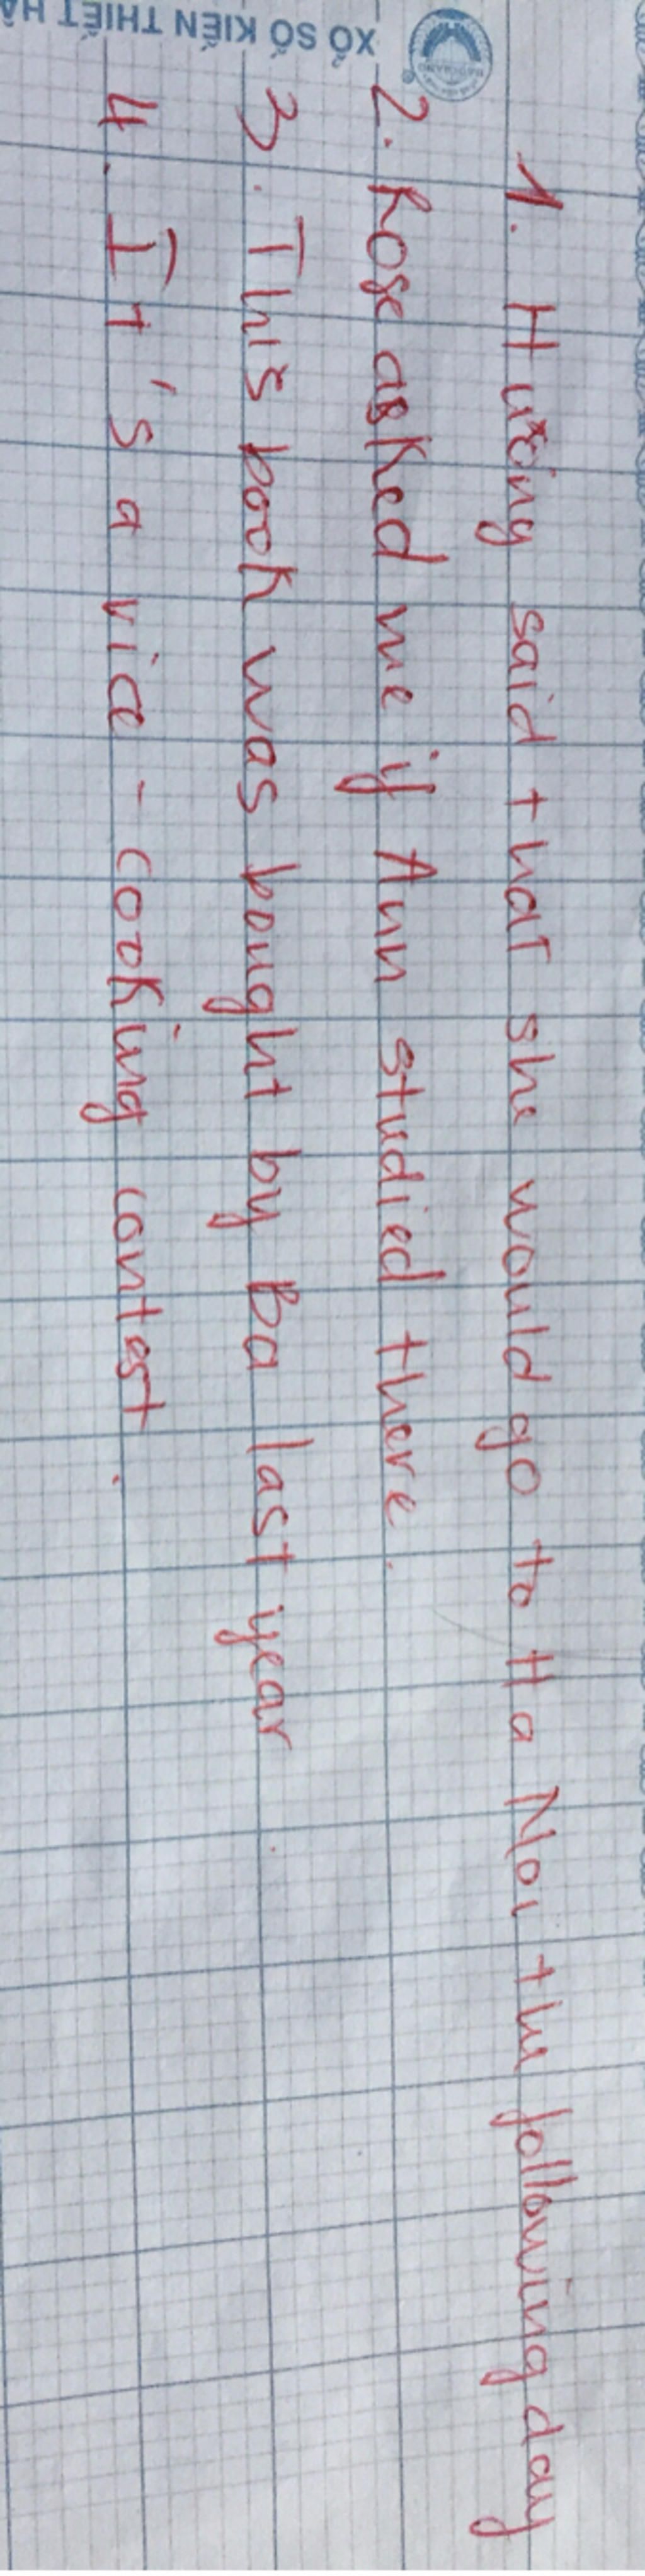 XỔ SỐ KIẾN THIẾT HÀ
1. Hường said that she would go to Ha Noi the following day
2. Rose asked me if Ann studied there.
3. This book was bought by Ba last year.
4. It's a rice - cooking contest.